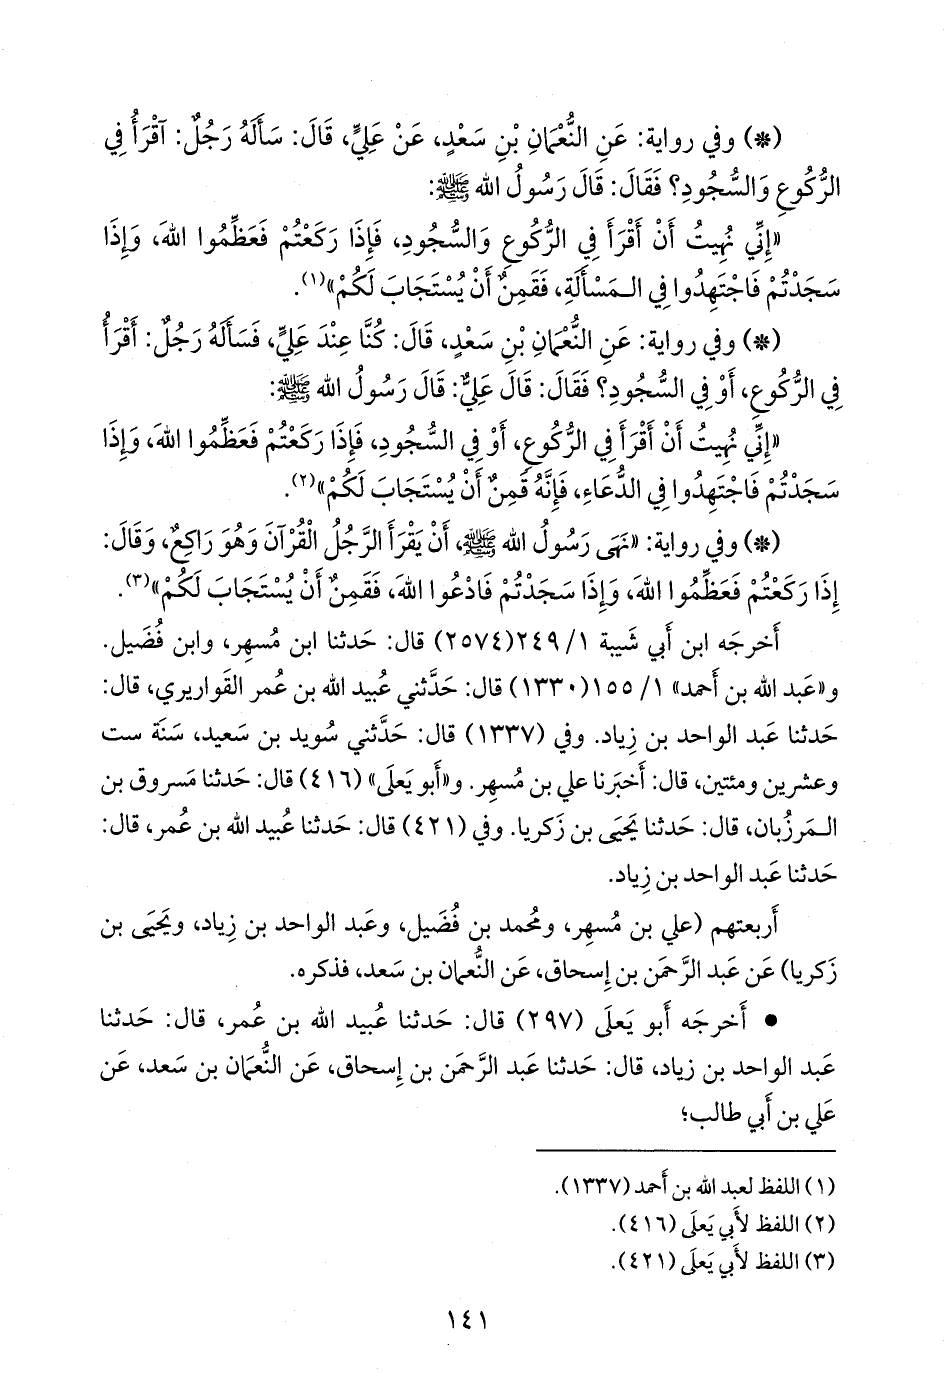 (*) وفي رواية: عَنِ النُّعْمَانِ بْنِ سَعْدٍ، عَنْ عَلِيٍّ، قَالَ: سَأَلَهُ رَجُلٌ: آقْرَأُ فِي
الرُّكُوعِ وَالسُّجُودِ؟ فَقَالَ: قَالَ رَسُولُ الله ﷺ:
«إِنِّي نُهِيتُ أَنْ أَقْرَأَ فِي الرُّكُوعِ وَالسُّجُودِ، فَإِذَا رَكَعْتُمْ فَعَظِّمُوا اللهَ، وَإِذَا
سَجَدْتُمْ فَاجْتَهِدُوا فِي الـمَسْأَلَةِ، فَقَمِنٌ أَنْ يُسْتَجَابَ لَكُمْ»(١).
(*) وفي رواية: عَنِ النُّعْمَانِ بْنِ سَعْدٍ، قَالَ: كُنَّا عِنْدَ عَلِيٍّ، فَسَأَلَهُ رَجُلٌ: أَقْرَأُ
فِي الرُّكُوعِ، أَوْ فِي السُّجُودِ؟ فَقَالَ: قَالَ عَلِيٌّ: قَالَ رَسُولُ الله ﷺ:
«إِنِّي نُهِيتُ أَنْ أَقْرَأَ فِي الرُّكُوعِ، أَوْ فِي السُّجُودِ، فَإِذَا رَكَعْتُمْ فَعَظِّمُوا اللهَ، وَإِذَا
سَجَدْتُمْ فَاجْتَهِدُوا فِي الدُّعَاءِ، فَإِنَّهُ قَمِنٌ أَنْ يُسْتَجَابَ لَكُمْ»(٢).
(*) وفي رواية: «نَهَى رَسُولُ الله ﷺ، أَنْ يَقْرَأَ الرَّجُلُ الْقُرْآنَ وَهُوَ رَاكِعٌ، وَقَالَ:
إِذَا رَكَعْتُمْ فَعَظِّمُوا اللهَ، وَإِذَا سَجَدْتُمْ فَادْعُوا اللهَ، فَقَمِنٌ أَنْ يُسْتَجَابَ لَكُمْ»(٣).
أَخرجَه ابن أَبي شَيبة ١/ ٢٤٩(٢٥٧٤) قال: حَدثنا ابن مُسهِر، وابن فُضَيل.
و«عَبد الله بن أَحمد» ١/ ١٥٥(١٣٣٠) قال: حَدَّثني عُبيد الله بن عُمر القَواريري، قال:
حَدثنا عَبد الواحد بن زِياد. وفي (١٣٣٧) قال: حَدَّثني سُويد بن سَعيد، سَنَة ست
وعشرين ومئتين، قال: أَخبَرنا علي بن مُسهِر. و«أَبو يَعلَى» (٤١٦) قال: حَدثنا مَسروق بن
الـمَرزُبان، قال: حَدثنا يَحيَى بن زَكريا. وفي (٤٢١) قال: حَدثنا عُبيد الله بن عُمر، قال:
حَدثنا عَبد الواحد بن زِياد.
أَربعتهم (علي بن مُسهِر، ومُحمد بن فُضَيل، وعَبد الواحد بن زِياد، ويَحيَى بن
زَكريا) عَن عَبد الرَّحمَن بن إِسحاق، عَن النُّعمان بن سَعد، فذكره.
• أَخرجَه أَبو يَعلَى (٢٩٧) قال: حَدثنا عُبيد الله بن عُمر، قال: حَدثنا
عَبد الواحد بن زياد، قال: حَدثنا عَبد الرَّحمَن بن إِسحاق، عَن النُّعمان بن سَعد، عَن
عَلي بن أَبي طالب؛
(١) اللفظ لعبد الله بن أَحمد (١٣٣٧).
(٢) اللفظ لأَبي يَعلَى (٤١٦).
(٣) اللفظ لأَبي يَعلَى (٤٢١).
١٤١